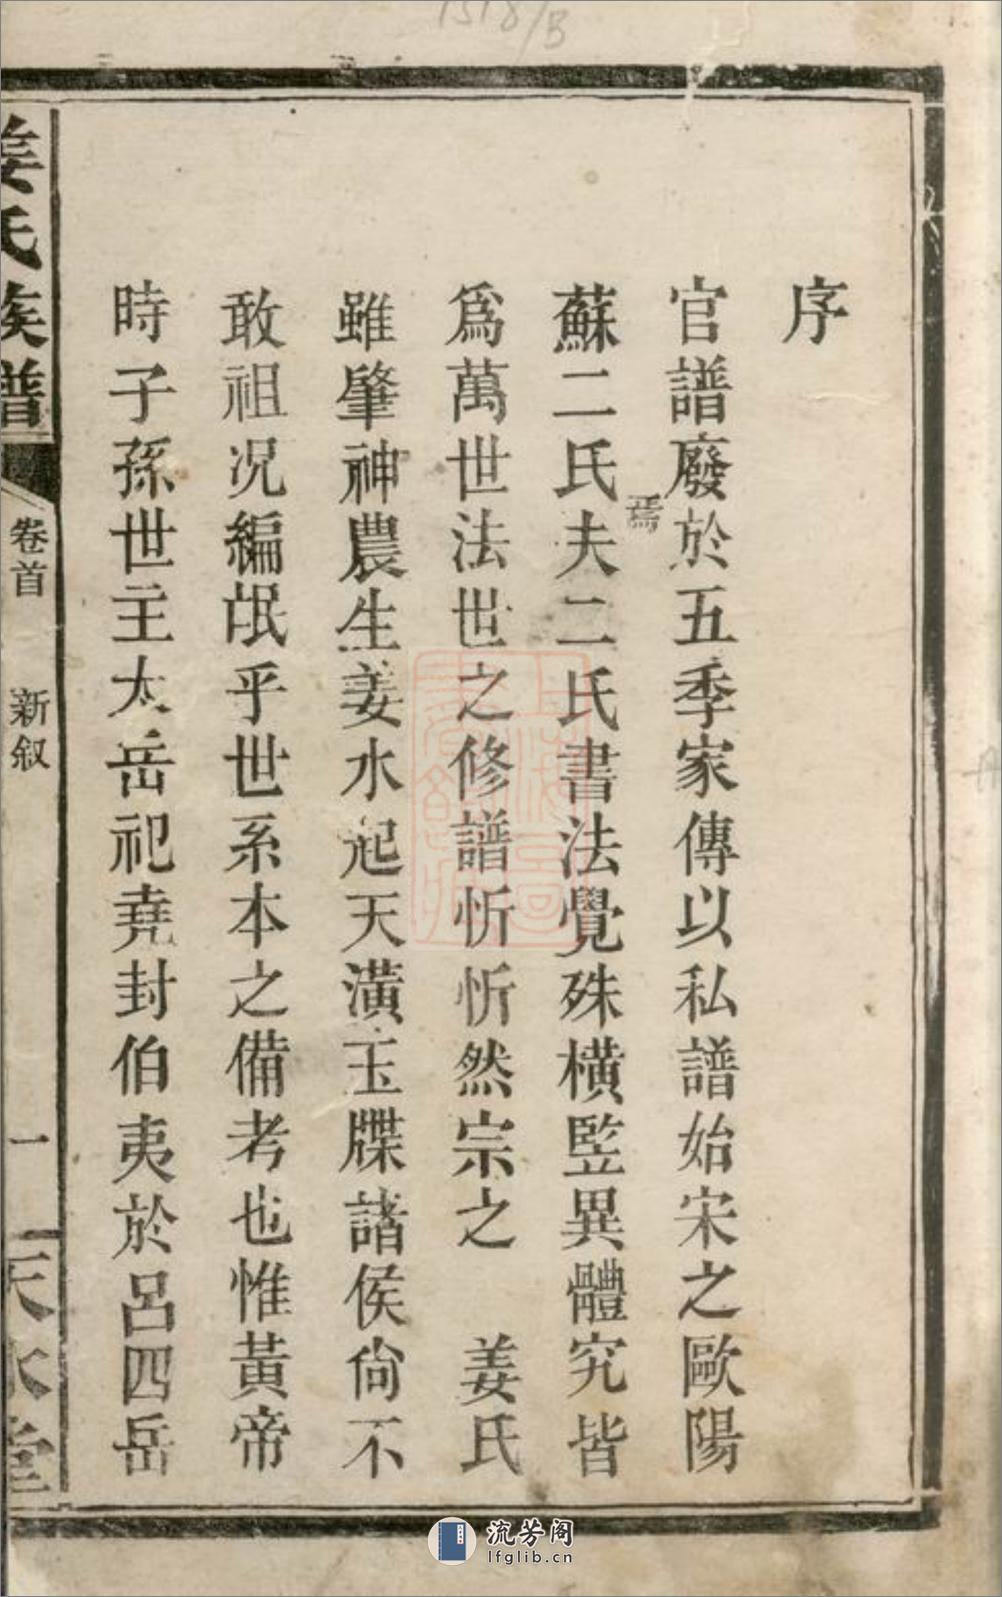 1318/B
序
官譜廢於五季家傳以私譜始宋之歐陽
焉
蘇二氏夫二氏書法覺殊橫監異體究皆
為萬世法世之修譜忻忻然宗之 姜氏
雖肇神農生姜水起天潢玉牒諸侯尙不
敢祖况編氓乎世系本之備考也惟黃帝
時子孫世主太岳祀堯封伯夷於呂四岳
姜氏族譜
卷首 新叙
一
天水堂
流芳阁
lfglib.cn